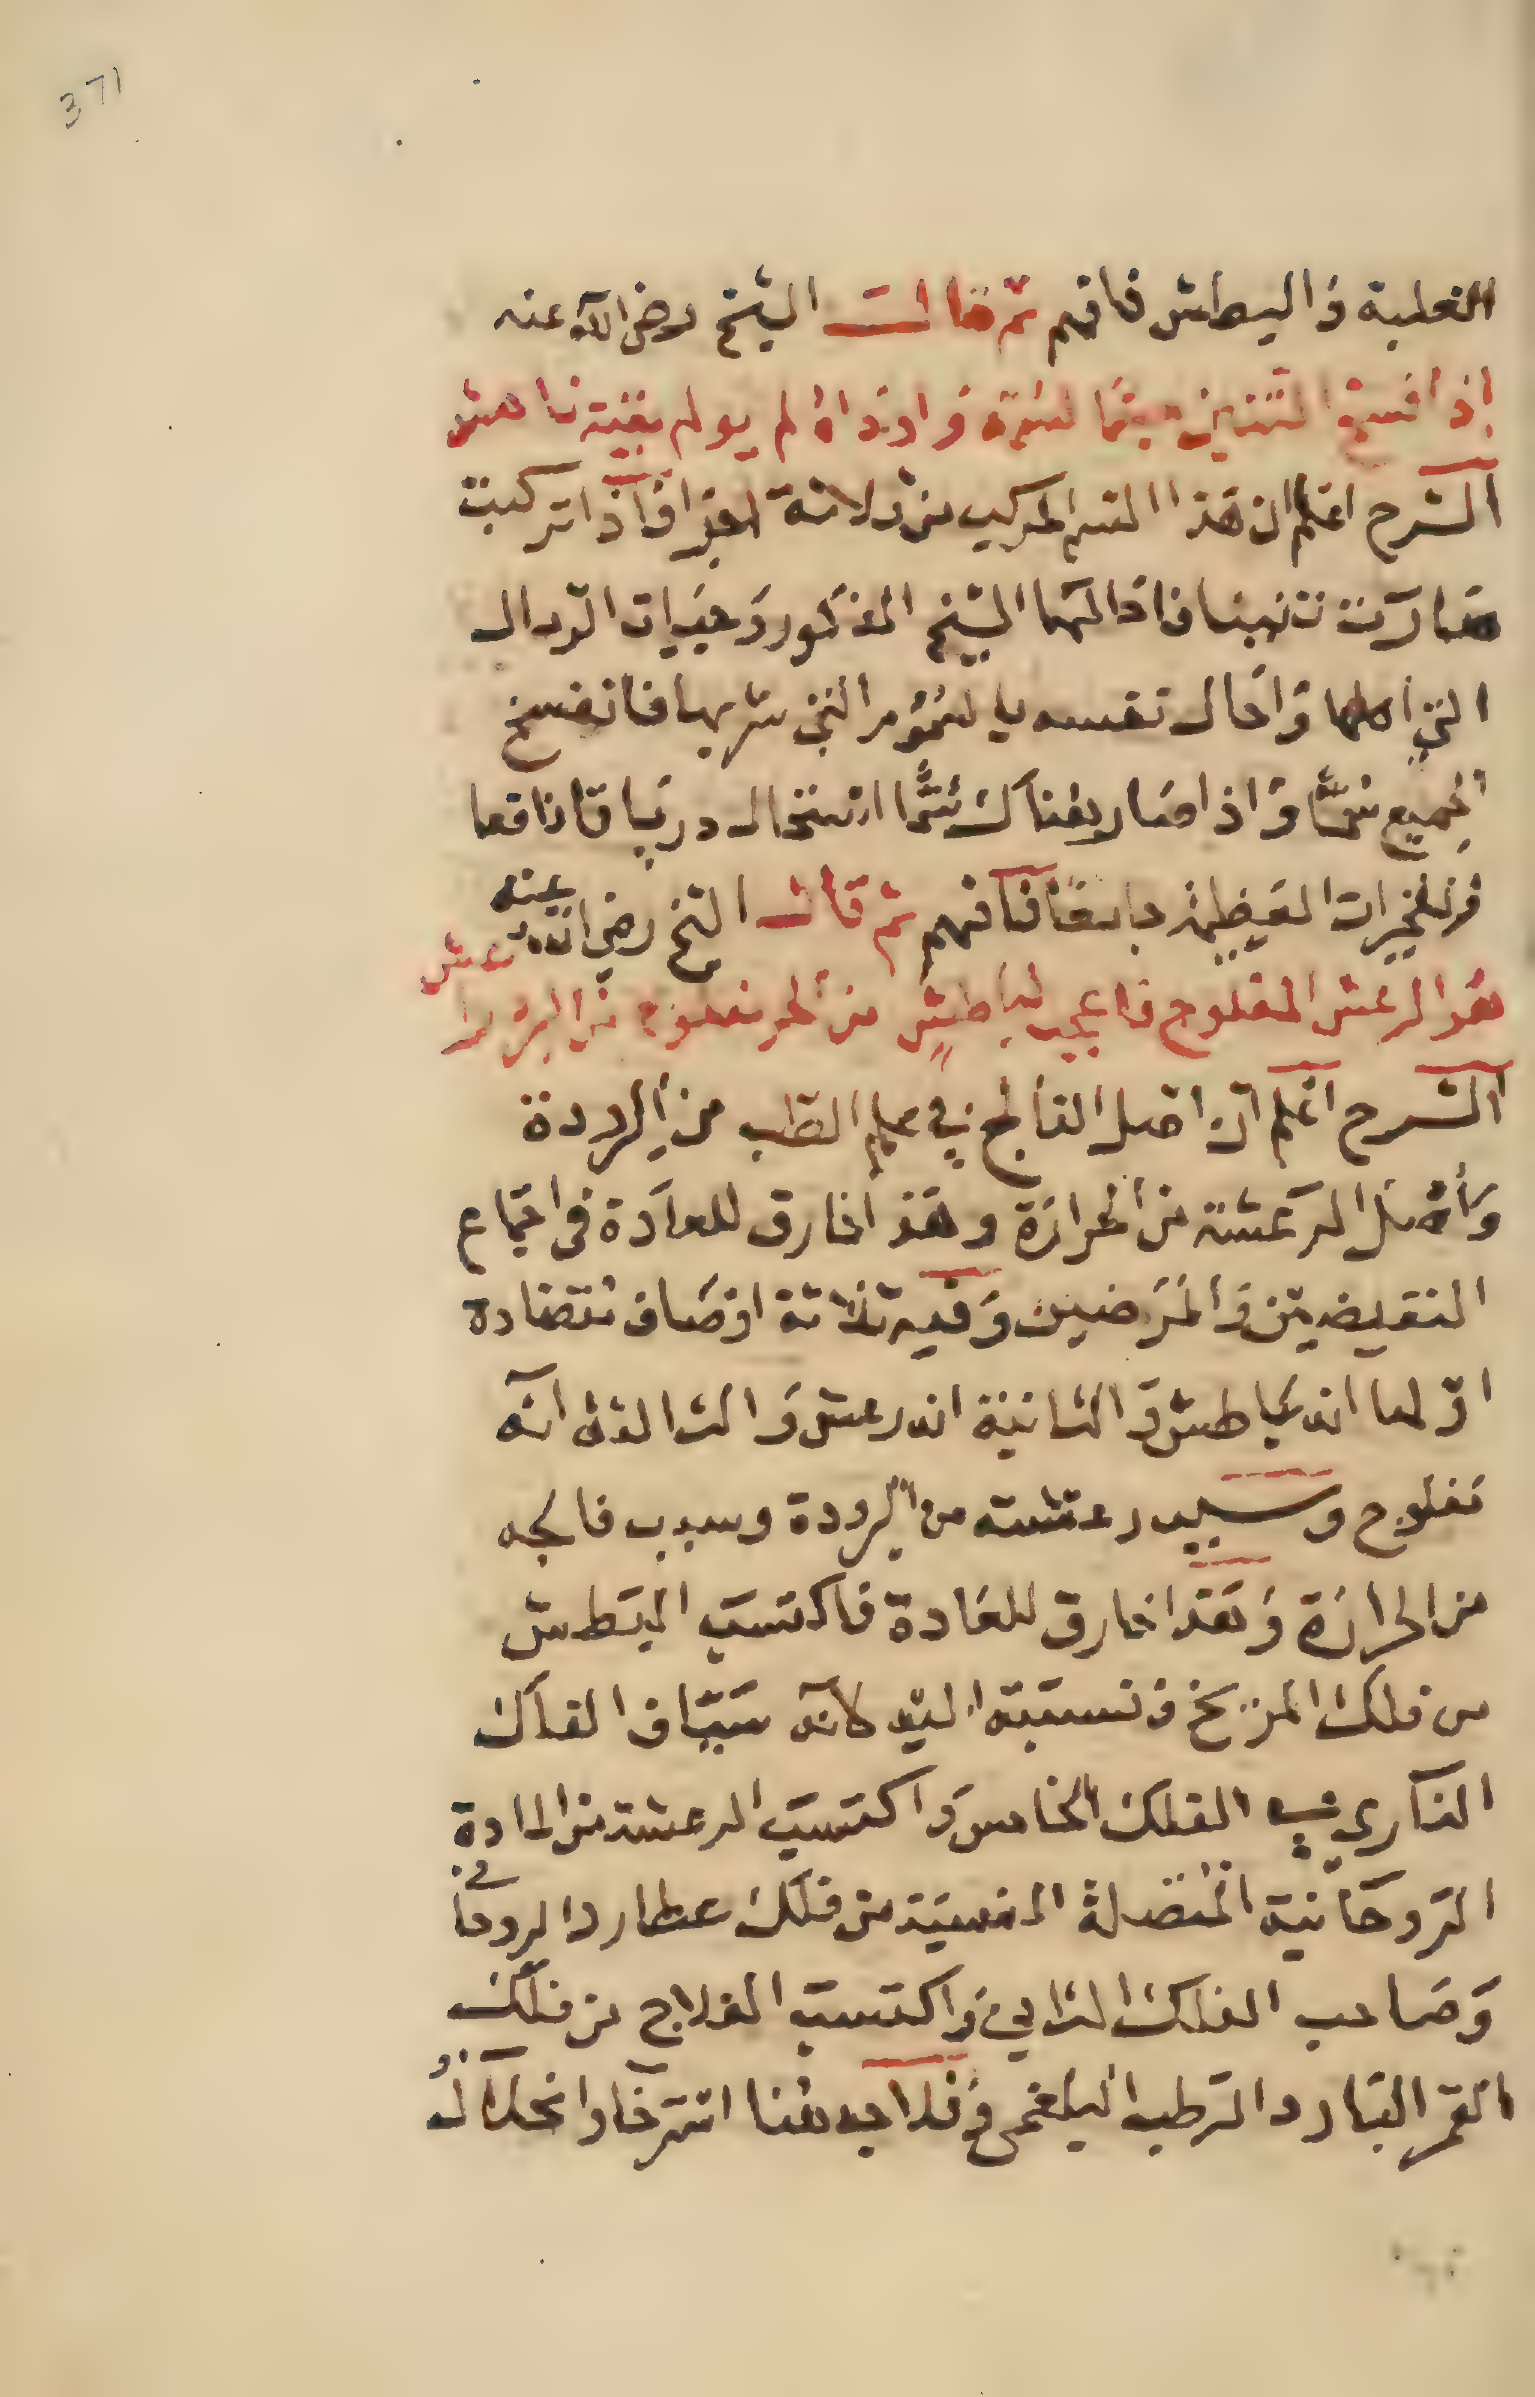 371
الغلبة والبطش فافهم ثم قال الشيخ رضى الله عنه
إذا فسخ التنين سما لسمه وارداه لم يولم بغيته ناهش
الشرح اعلم ان هذا السم المركب من ثلاثة اجزا فاذا تركبت
صارت تنينا فاذا لها الشيخ المذكور وحيات الرمال
التي اكلها واحال نفسه بالسموم التي شربها فانفسخ
الجميع سما واذا صار هناك سما استحال درياقا نافعا
من المعظيمة دابغا فافهم ثم قال الشيخ رضي الله عنه
هو الرعش المفلوج فاعجب لباطش من الحر مفلوج من البرد راعش
الشرح اعلم ان اصل الفالج في علم الطب من البرودة
واصل الرعشة من الحرارة وهذا خارق للعادة في اجتماع
النقيضين والمرضين وفيه ثلاثة اوصاف متضادة
اولها انه باطش والثانية انه رعش والثالثة انه
مفلوج وسبب رعشته من البرودة وسبب فالجه
من الحرارة وهذا خارق للعادة فاكتسب البطش
من فلك المريخ ونسبته اليه لانه سياف الفلك
الناري في الفلك الخامس واكتسب الرعشة من المادة
الروحانية المتصلة النفسية من فلك عطارد الروحاني
وصاحب الفلك الثاني واكتسب الفلاج من فلك
القمر البارد الرطب البلغمي وفلاجه هنا استرخا وانحلال